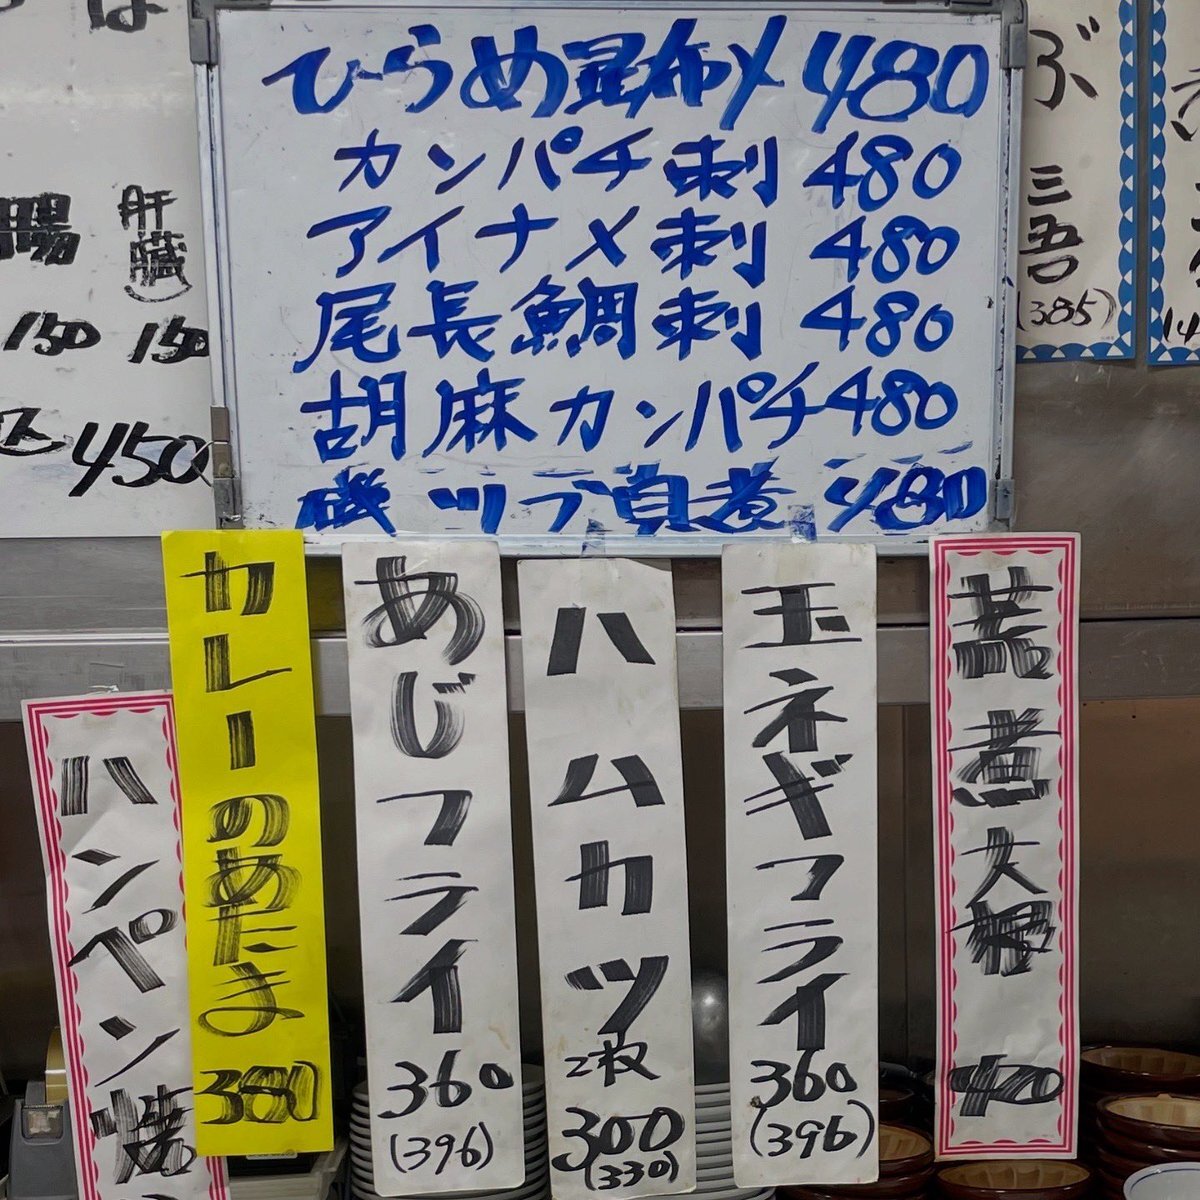 ひらめ昆布〆480
カンパチ刺 480
アイナメ刺 480
尾長鯛刺 480
胡麻カンパチ480
磯ツブ貝煮 480
ぶ
三
吾
(385)
腸
150
肝臓
150
450
ハンペン焼
カレーのあたま
380
あじフライ
360
(396)
ハムカツ
2枚
300
(330)
玉ネギフライ
360
(396)
煮大根